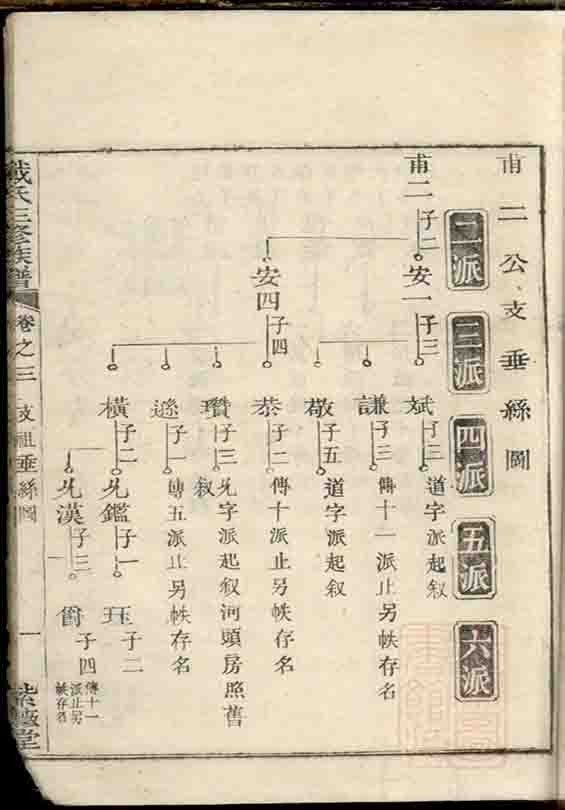 甫二公支垂絲圖
二派
三派
四派
五派
六派
甫二
子二
安一
子三
安四
子四
斌
子三
道字派起叙
謙
子三
傳十一派止另帙存名
敬
子五
道字派起叙
恭
子二
傳十派止另帙存名
瓚
子三
允字派起叙河頭房照舊
叙
遜
子一
傳五派止另帙存名
橫
子二
允鑑
子一
珏
子二
允漢
子三
爵
子四
傳十一
派止另
帙存名
戴氏三修族譜
卷之三
支祖垂絲圖
一
紫薇堂